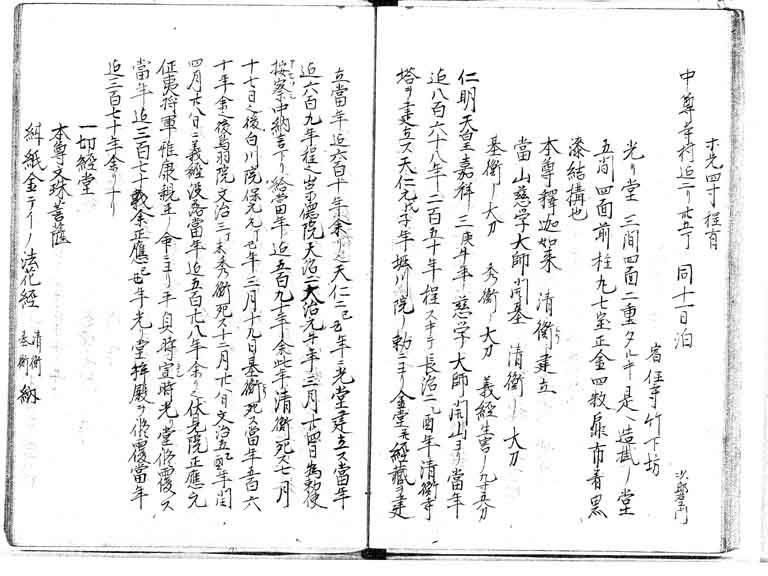 ホ先四寸程有
中尊寺村迄二リ廿五丁 同十一日泊
宿 任寺 竹下坊 次郎左衛門
光リ堂 三間四面二重タルキ 是ノ造営ノ堂
五間四面前柱九七宝正金四枚扉布着黒
漆結構也
本尊釋迦如来 清衡建立
當山慈学大師開基 清衡ノ大刀
基衡ノ大刀 秀衡ノ大刀 義経生害ノ九寸五分
仁明天皇嘉祥三庚午年慈学大師開山ヨリ當年
迄八百六十八年ニ百五十年程スギテ長治二乙酉年清衡寺
塔ヲ建立ス天仁元戊子年堀川院ノ勅ニヨリ金堂并経蔵ヲ建
立當年迄六百十年余リ天仁二己丑年ニ光堂建立ス當年
迄六百九年程也崇徳院天治二大治元午年三月廿四日為勅使
按察中納言下リ給當年迄五百九十年余此年清衡死ス七月
十七日之後白川院保元元丁巳年三月十九日基衡死ス當年五百六
十年余之後鳥羽院文治三丁未秀衡死ス十二月廿八日文治五己酉年閏
四月廿八日ニ義経没落當年迄五百廿八年余リ之伏見院正應元
征夷将軍惟康親王ノ命ニヨリ平貞時宣時光リ堂修覆ス
當年迄三百七十載余正應二己丑年光リ堂拝殿ヲ修覆當年
迄三百七十年余ナリ
一切経堂
本尊文珠菩薩
紺紙金テイノ法花経 清衡 基衡 納